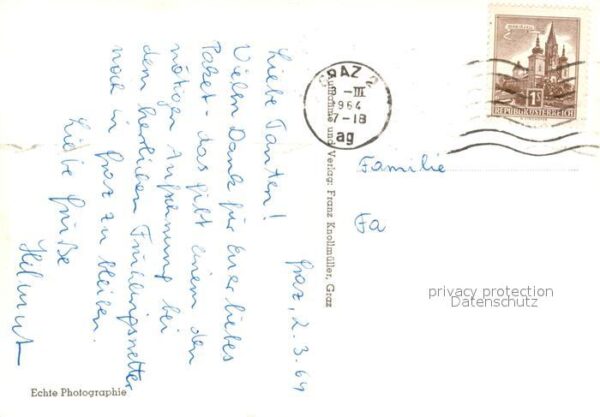 Graz, 2.3.64
Liebe Tanten!
Vielen Dank für Euer liebes
Paket - das gibt einem den
nötigen Aufschwung bei
dem herrlichen Frühlingswetter
noch in Graz zu bleiben.
Liebe Grüße
Helmut
Echte Photographie
Aufnahme und Verlag: Franz Knollmüller, Graz
GRAZ 2
-III
1964
7-18
ag
1S
REPUBLIK ÖSTERREICH
Familie
Fa
privacy protection
Datenschutz